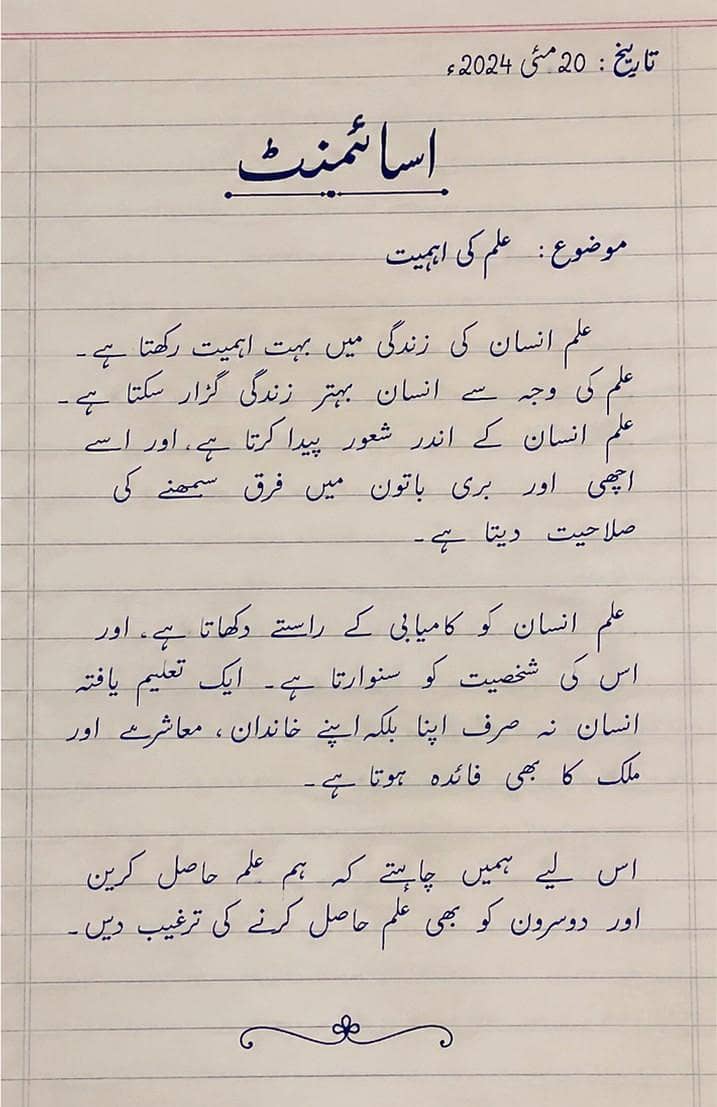 تاریخ : 20 مئی 2024ء
اسائمنٹ
موضوع : علم کی اہمیت
علم انسان کی زندگی میں بہت اہمیت رکھتا ہے۔
علم کی وجہ سے انسان بہتر زندگی گزار سکتا ہے۔
علم انسان کے اندر شعور پیدا کرتا ہے، اور اسے
اچھی اور بری باتون میں فرق سمجھنے کی
صلاحیت دیتا ہے۔
علم انسان کو کامیابی کے راستے دکھاتا ہے، اور
اس کی شخصیت کو سنوارتا ہے۔ ایک تعلیم یافتہ
انسان نہ صرف اپنا بلکہ اپنے خاندان، معاشرے اور
ملک کا بھی فائدہ ہوتا ہے۔
اس لیے ہمیں چاہئے کہ ہم علم حاصل کرین
اور دوسرون کو بھی علم حاصل کرنے کی ترغیب دیں۔